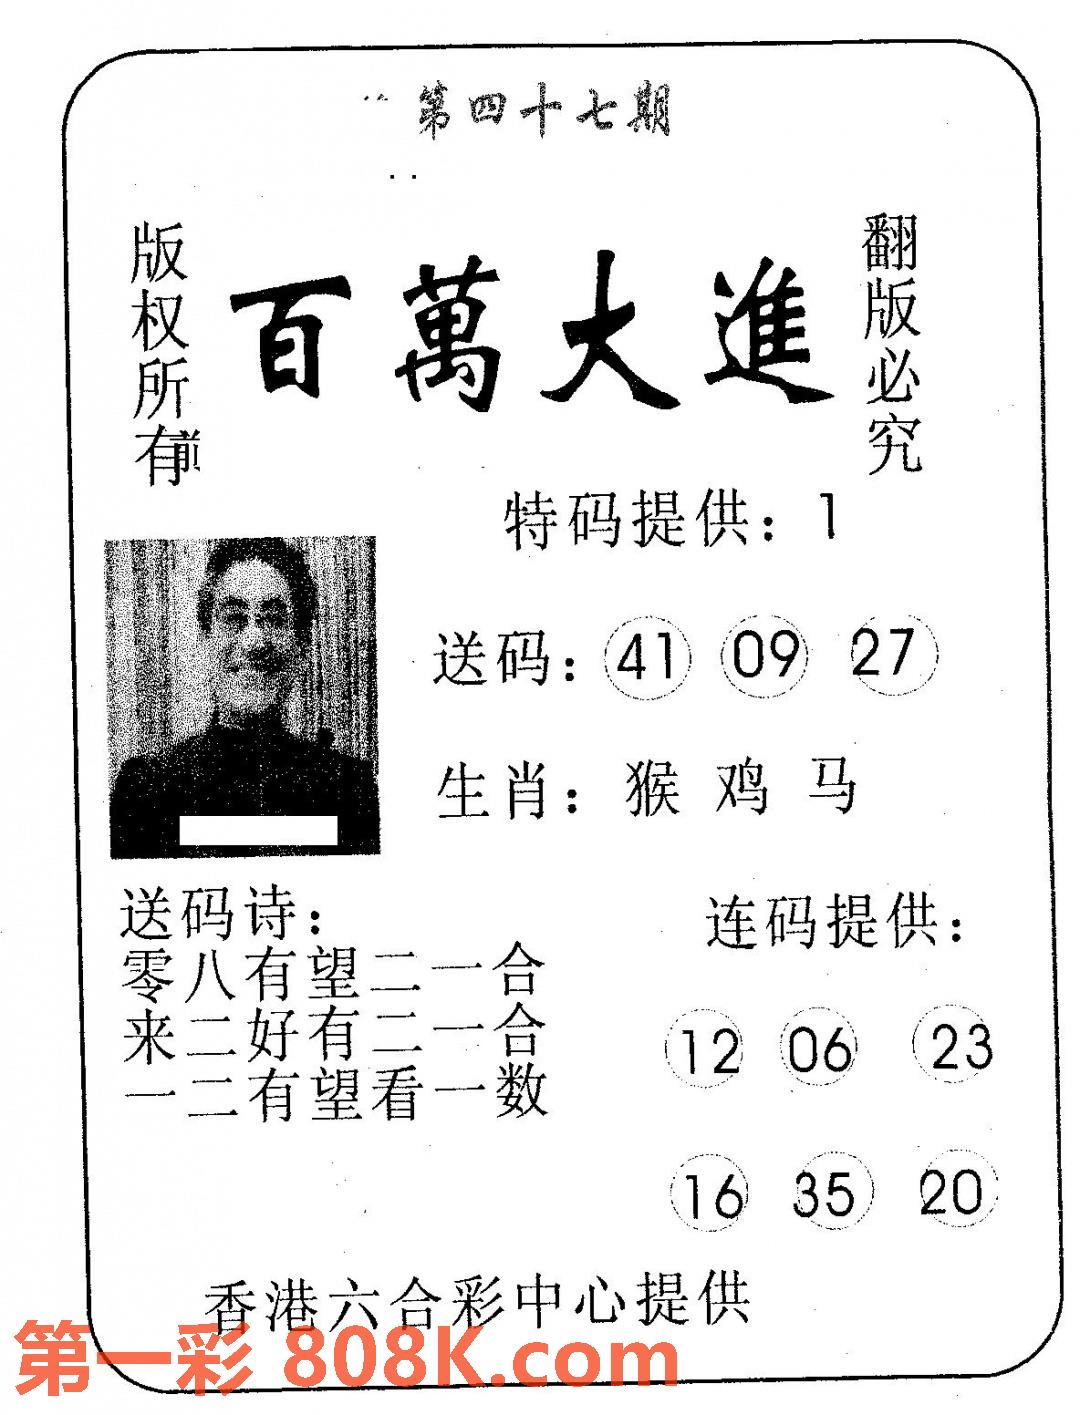 第四十七期
版权所有
百萬大進
翻版必究
特码提供：1
送码：41 09 27
生肖：猴 鸡 马
送码诗：
零八有望二一合
来二好有二一合
一二有望看一数
连码提供：
12 06 23
16 35 20
香港六合彩中心提供
第一彩 808K.com